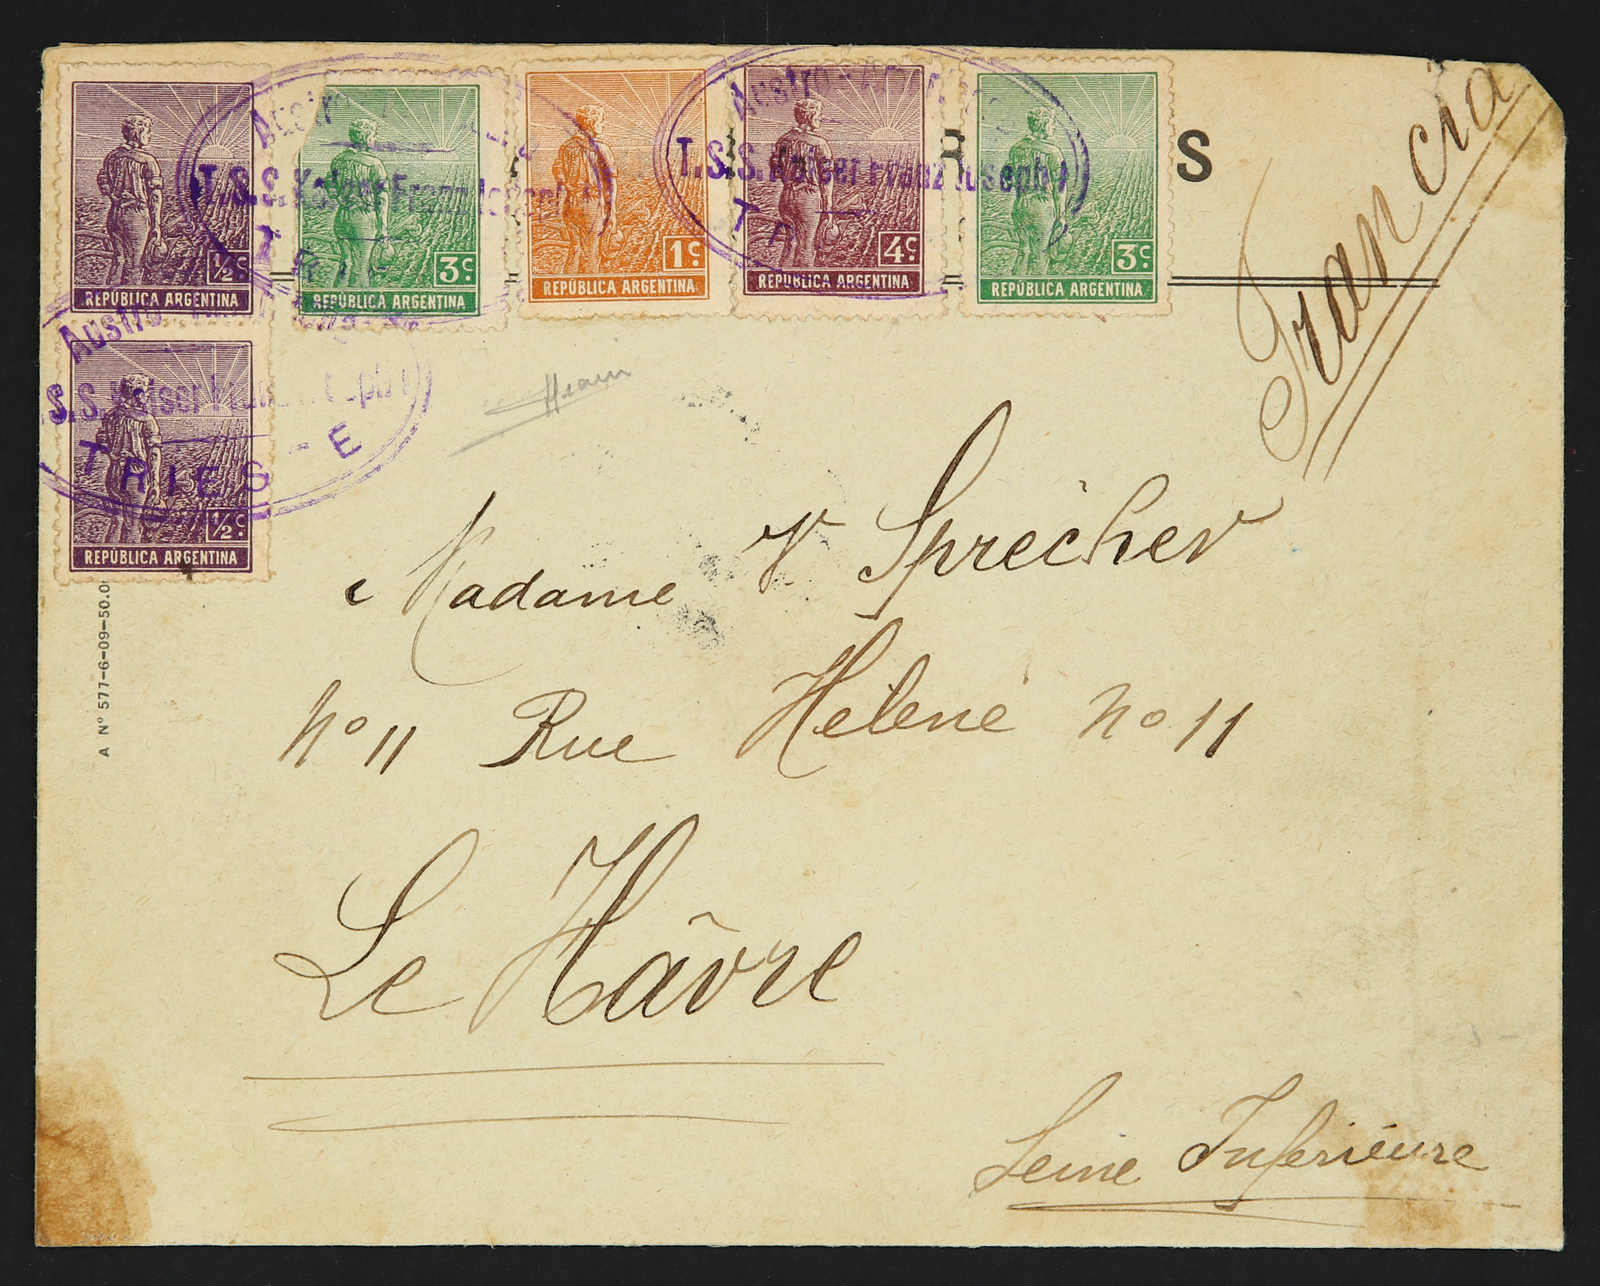 Francia
S
½c.
REPÚBLICA ARGENTINA
3c.
REPÚBLICA ARGENTINA
1c.
REPÚBLICA ARGENTINA
4c.
REPÚBLICA ARGENTINA
3c.
REPÚBLICA ARGENTINA
½c.
REPÚBLICA ARGENTINA
T.S.S. Kaiser Franz Joseph I
T.S.S. Kaiser Franz Joseph I
Austro
S.S. Kaiser
TRIES E
Madame Vᵉ Sprecher
Nº 11 Rue Hélène Nº 11
Le Hâvre
Seine Inférieure
A Nº 577-6-09-50.0